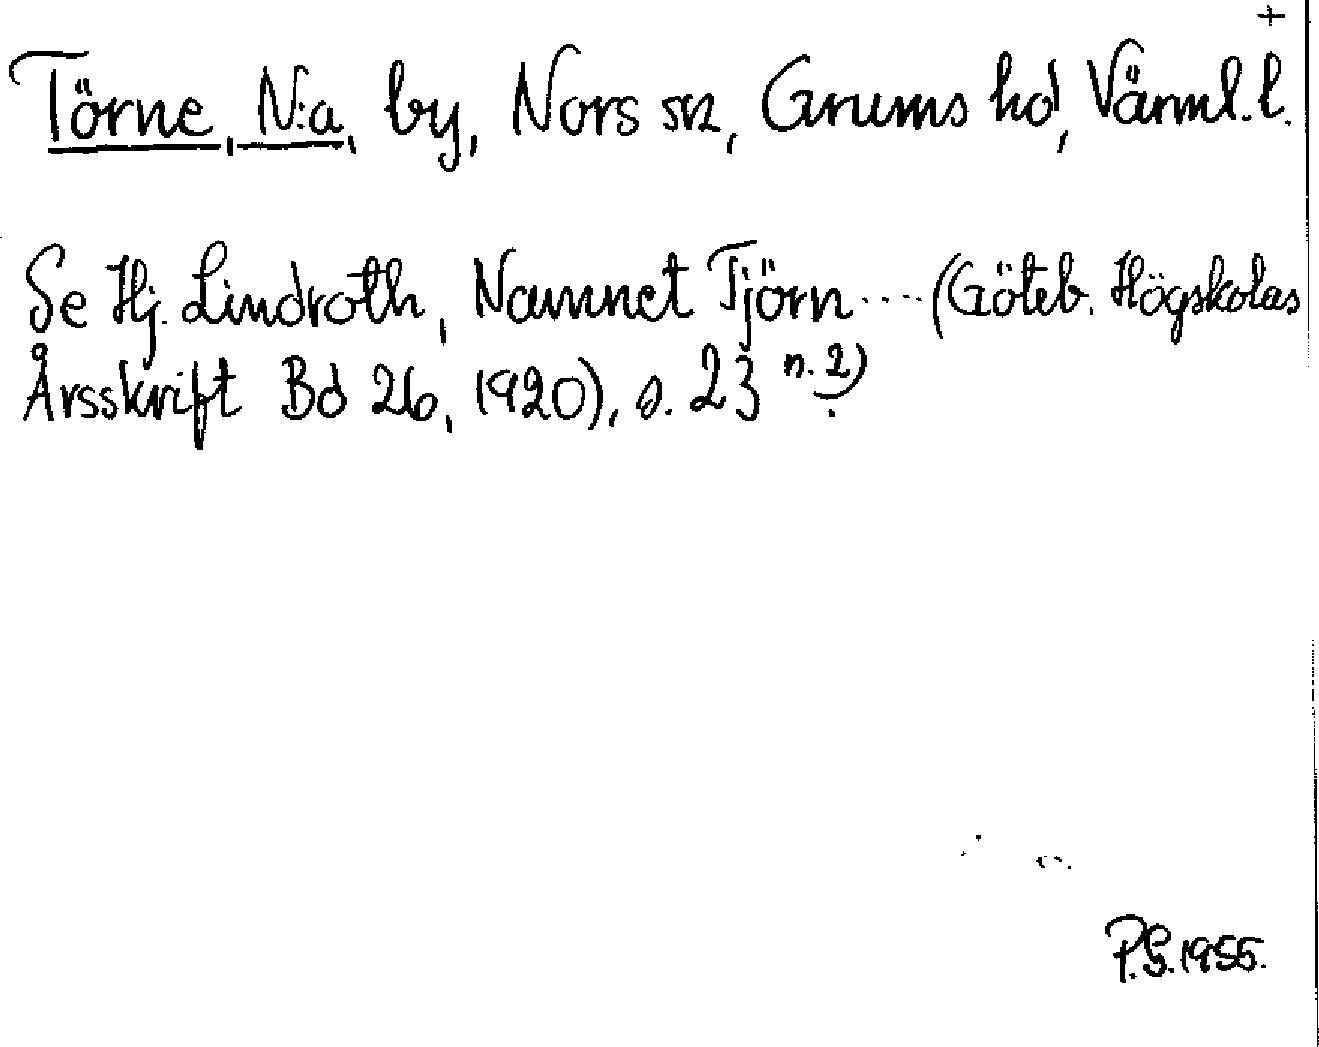 +
Törne, N:a, by, Nors sn, Grums hd, Värml. l.
Se Hj. Lindroth, Namnet Tjörn .... (Göteb. Högskolas
Årsskrift Bd 26, 1920), s. 23 n. 2)
P.G. 1955.